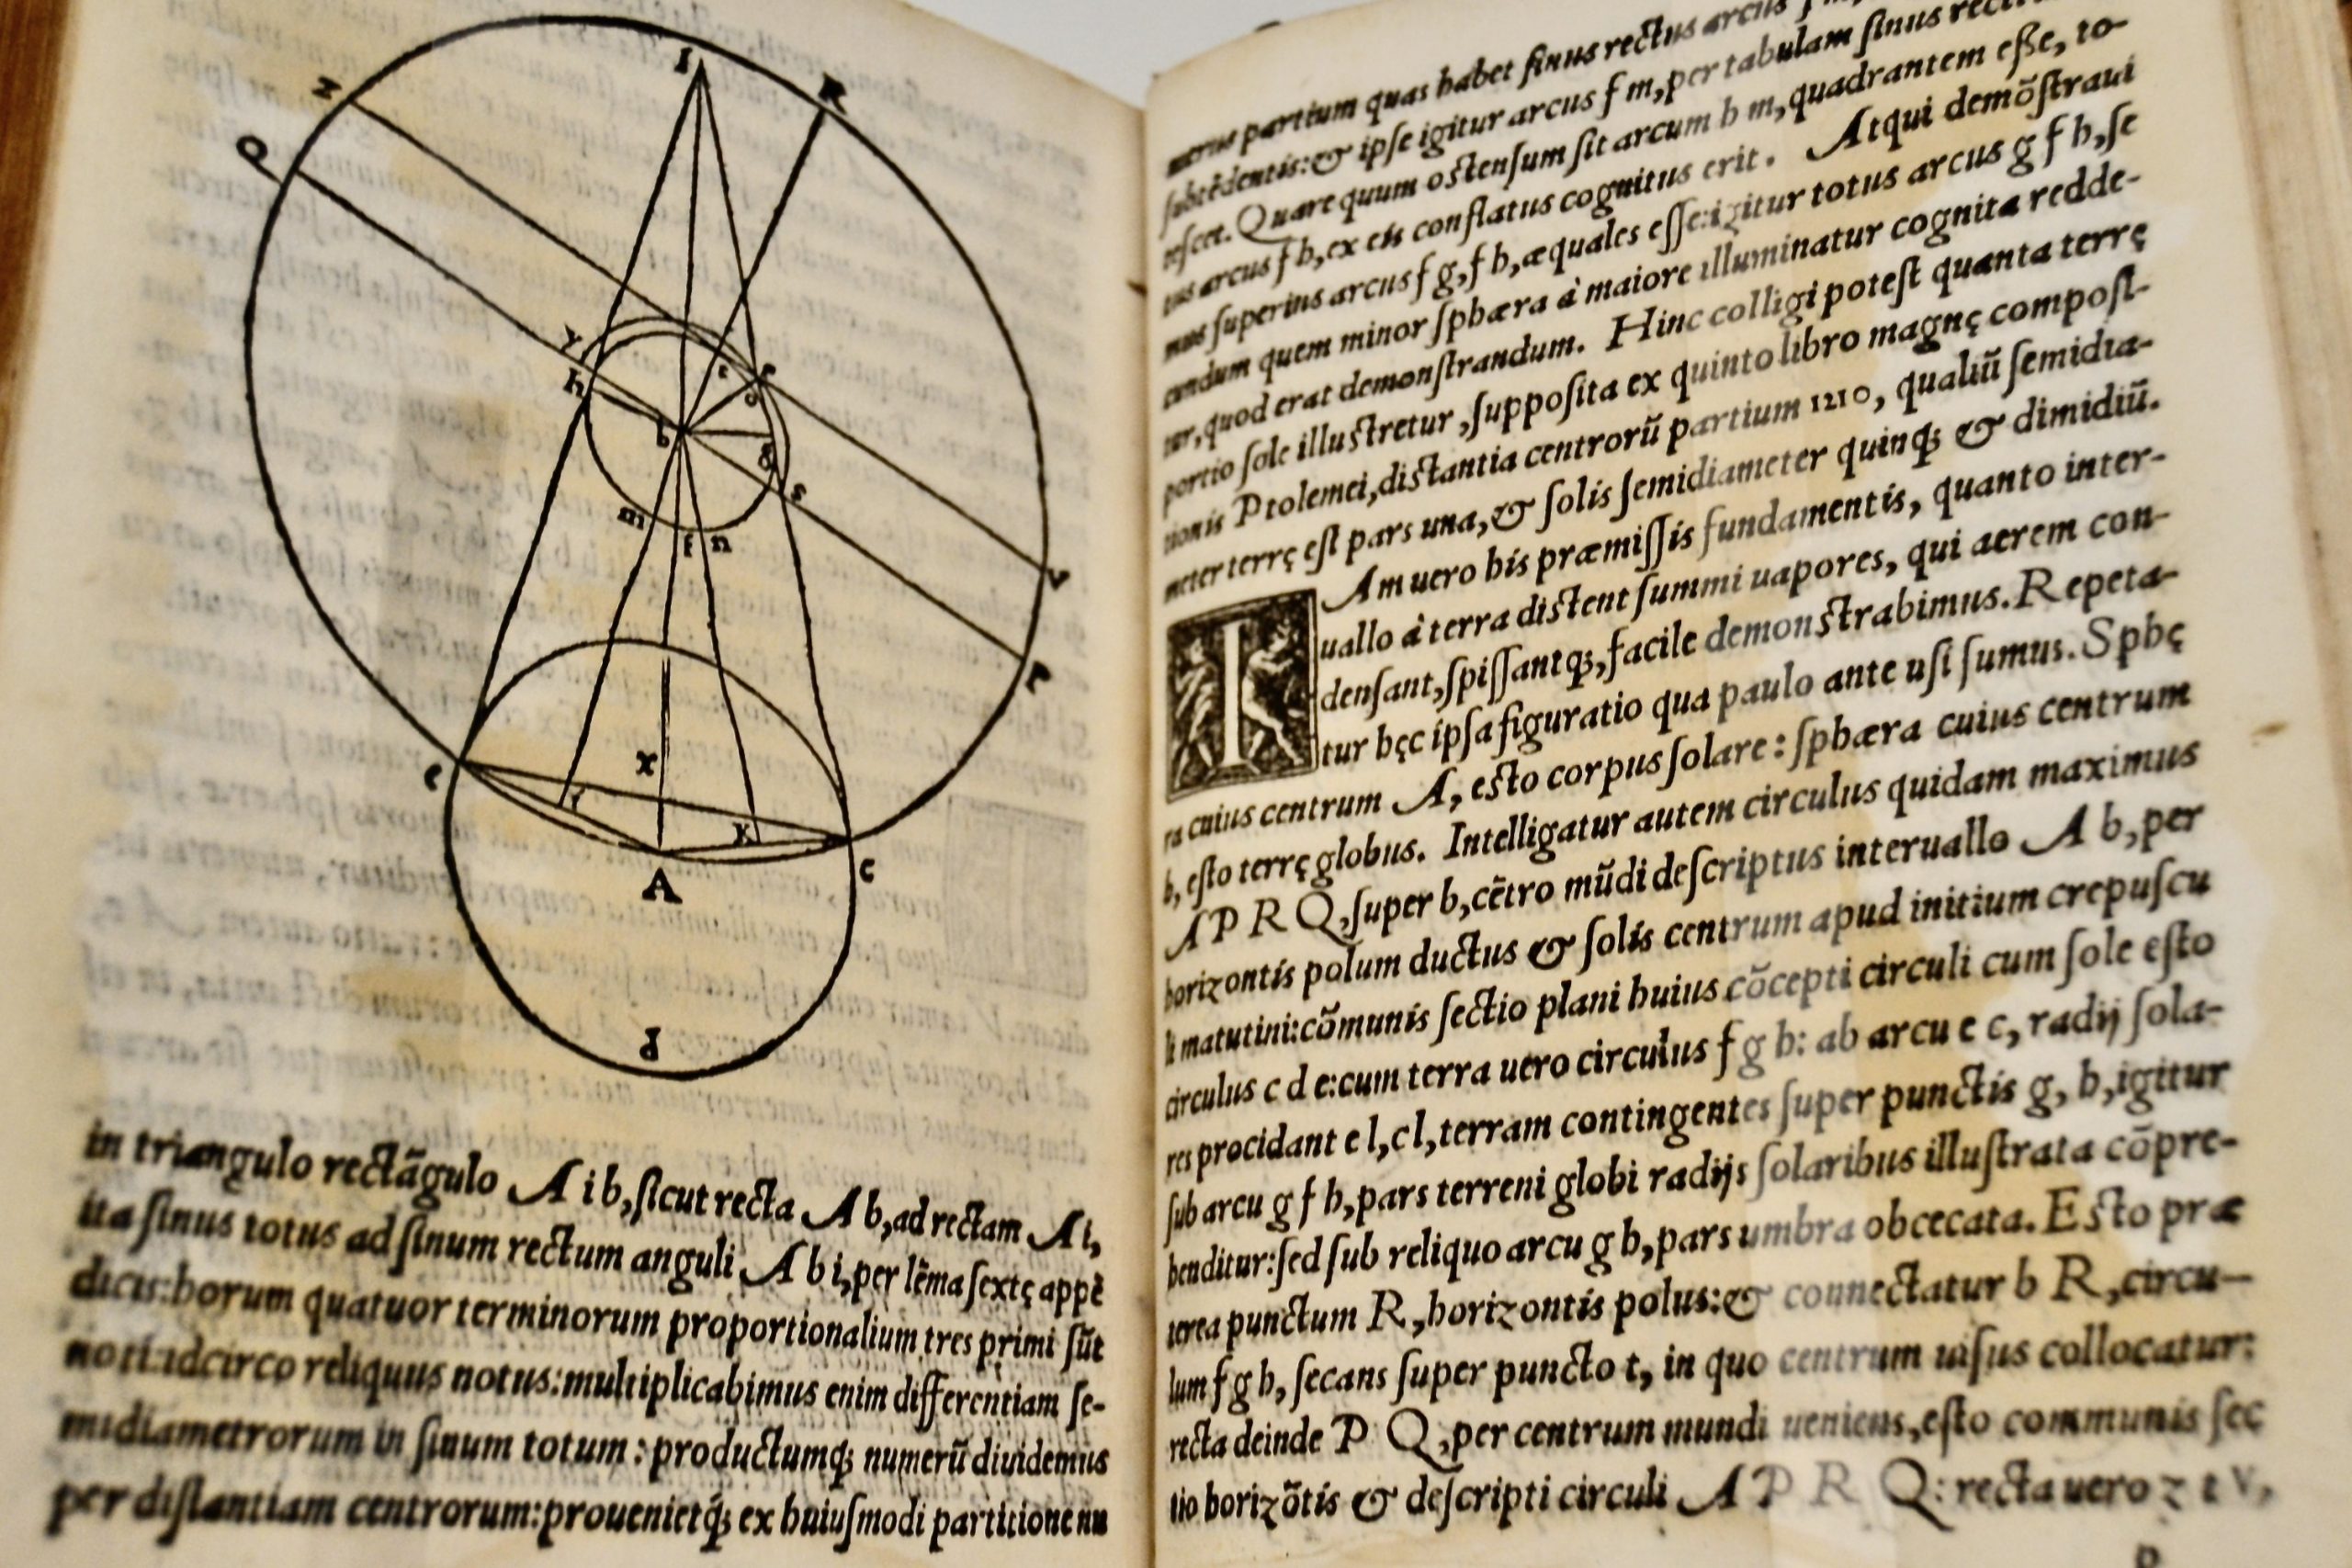 I
R
Z
Q
r
h
t
o
b
g
s
m
f n
V
P
e
X
K
A
c
d
in triangulo rectãgulo A i b, ſicut recta A b, ad rectam A i,
ita ſinus totus ad ſinum rectum anguli A b i, per lẽma ſextę appẽ
dicis: horum quatuor terminorum proportionalium tres primi ſũt
noti: idcirco reliquus notus: multiplicabimus enim differentiam ſe-
midiametrorum in ſinum totum: productumq́; numerũ diuidemus
per diſtantiam centrorum: prouenietq́; ex huiuſmodi partitione nu
merus partium quas habet ſinus rectus arcus
ſubtẽdentis: & ipſe igitur arcus f m, per tabulam ſinus recti
teſcet. Quare quum oſtenſum ſit arcum h m, quadrantem eſſe, to-
tus arcus f h, ex eis conflatus cognitus erit. Atqui demõſtraui
mus ſuperius arcus f g, f h, æquales eſſe: igitur totus arcus g f h, ſe
cundum quem minor ſphæra à maiore illuminatur cognita redde-
tur, quod erat demonſtrandum. Hinc colligi poteſt quanta terrę
portio ſole illuſtretur, ſuppoſita ex quinto libro magnę compoſi-
tionis Ptolemei, diſtantia centrorũ partium 1210, qualiũ ſemidia-
meter terrę eſt pars una, & ſolis ſemidiameter quinq; & dimidiũ.
IAm uero his præmiſſis fundamentis, quanto inter-
uallo à terra diſtent ſummi uapores, qui aerem con-
denſant, ſpiſſantq;, facile demonſtrabimus. Repeta-
tur hęc ipſa figuratio qua paulo ante uſi ſumus. Sphę
ra cuius centrum A, eſto corpus ſolare: ſphæra cuius centrum
b, eſto terrę globus. Intelligatur autem circulus quidam maximus
A P R Q, ſuper b, cẽtro mũdi deſcriptus interuallo A b, per
horizontis polum ductus & ſolis centrum apud initium crepuſcu
li matutini: cõmunis ſectio plani huius cõcepti circuli cum ſole eſto
circulus c d e: cum terra uero circulus f g h: ab arcu e c, radij ſola-
res procidant e l, c l, terram contingentes ſuper punctis g, h, igitur
ſub arcu g f h, pars terreni globi radijs ſolaribus illuſtrata cõpre-
henditur: ſed ſub reliquo arcu g h, pars umbra obcecata. Eſto præ
terea punctum R, horizontis polus: & connectatur b R, circu-
lum f g h, ſecans ſuper puncto t, in quo centrum uiſus collocatur:
recta deinde P Q, per centrum mundi ueniens, eſto communis ſec
tio horizõtis & deſcripti circuli A P R Q: recta uero z t V,